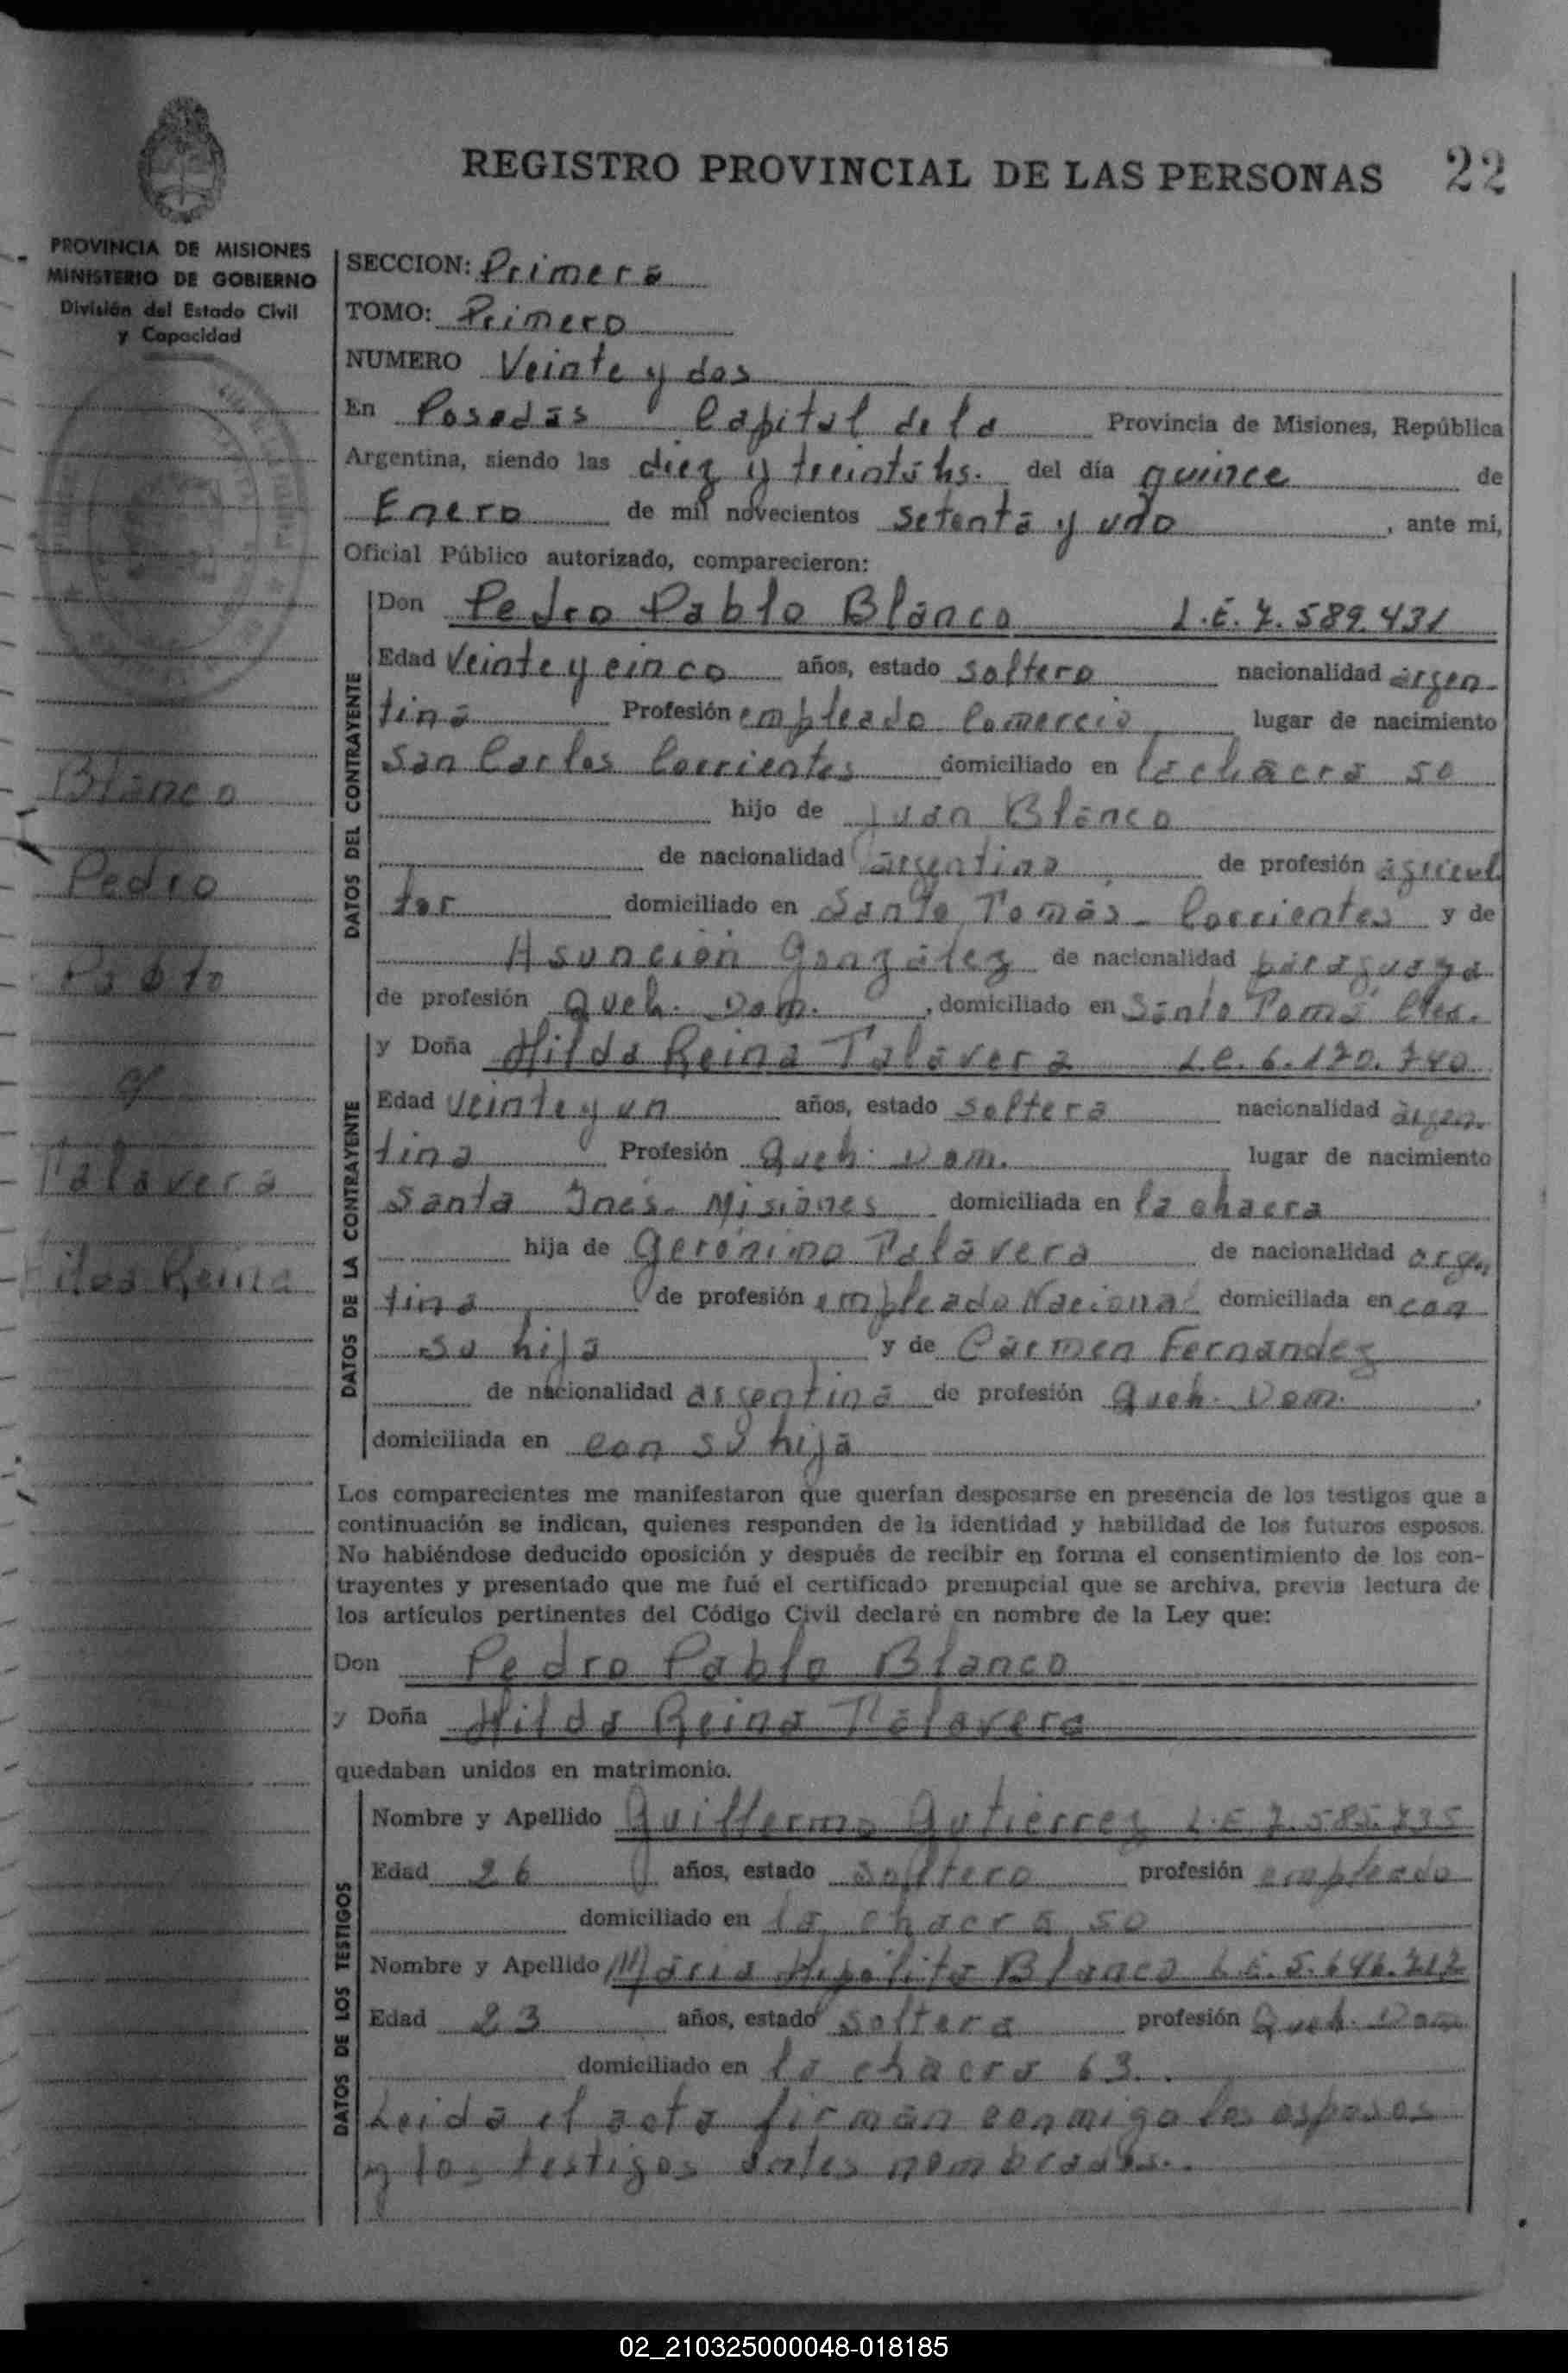 REGISTRO PROVINCIAL DE LAS PERSONAS 22
PROVINCIA DE MISIONES
MINISTERIO DE GOBIERNO
División del Estado Civil
y Capacidad
Blanco
Pedro
Pablo
c/
Talavera
Hilda Reina
SECCION: Primera
TOMO: Primero
NUMERO Veinte y dos
En Posadas Capital de la Provincia de Misiones, República
Argentina, siendo las diez y treinta hs. del día quince de
Enero de mil novecientos setenta y uno, ante mi,
Oficial Público autorizado, comparecieron:
DATOS DEL CONTRAYENTE
Don Pedro Pablo Blanco L.E. 7.589.431
Edad Veinte y cinco años, estado soltero nacionalidad argen-
tina Profesión empleado Comercio lugar de nacimiento
San Carlos Corrientes domiciliado en la chacra 50
hijo de Juan Blanco
de nacionalidad argentino de profesión agricul
tor domiciliado en Santo Tomás - Corrientes y de
Asunción González de nacionalidad paraguaya
de profesión Queh. Dom., domiciliado en Santo Tomé Ctes.
DATOS DE LA CONTRAYENTE
y Doña Hilda Reina Talavera L.C. 6.170.740
Edad veinte y un años, estado soltera nacionalidad argen.
tina Profesión Queh. Dom. lugar de nacimiento
Santa Inés - Misiones domiciliada en la chacra
hija de Gerónimo Talavera de nacionalidad argen
tina de profesión empleado Nacional domiciliada en con
su hija y de Carmen Fernandez
de nacionalidad argentina de profesión Queh. Dom.,
domiciliada en con su hija
Los comparecientes me manifestaron que querían desposarse en presencia de los testigos que a
continuación se indican, quienes responden de la identidad y habilidad de los futuros esposos.
No habiéndose deducido oposición y después de recibir en forma el consentimiento de los con-
trayentes y presentado que me fué el certificado prenupcial que se archiva, previa lectura de
los artículos pertinentes del Código Civil declaré en nombre de la Ley que:
Don Pedro Pablo Blanco
y Doña Hilda Reina Talavera
quedaban unidos en matrimonio.
DATOS DE LOS TESTIGOS
Nombre y Apellido Guillermo Gutiérrez L.E 7.585.735
Edad 26 años, estado soltero profesión empleado
domiciliado en la chacra 50
Nombre y Apellido María Hipólita Blanco L.C. 5.646.717
Edad 23 años, estado soltera profesión Queh. Dom
domiciliado en la chacra 63.
Leida el acta firman conmigo los esposos
y los testigos antes nombrados.
02_210325000048-018185